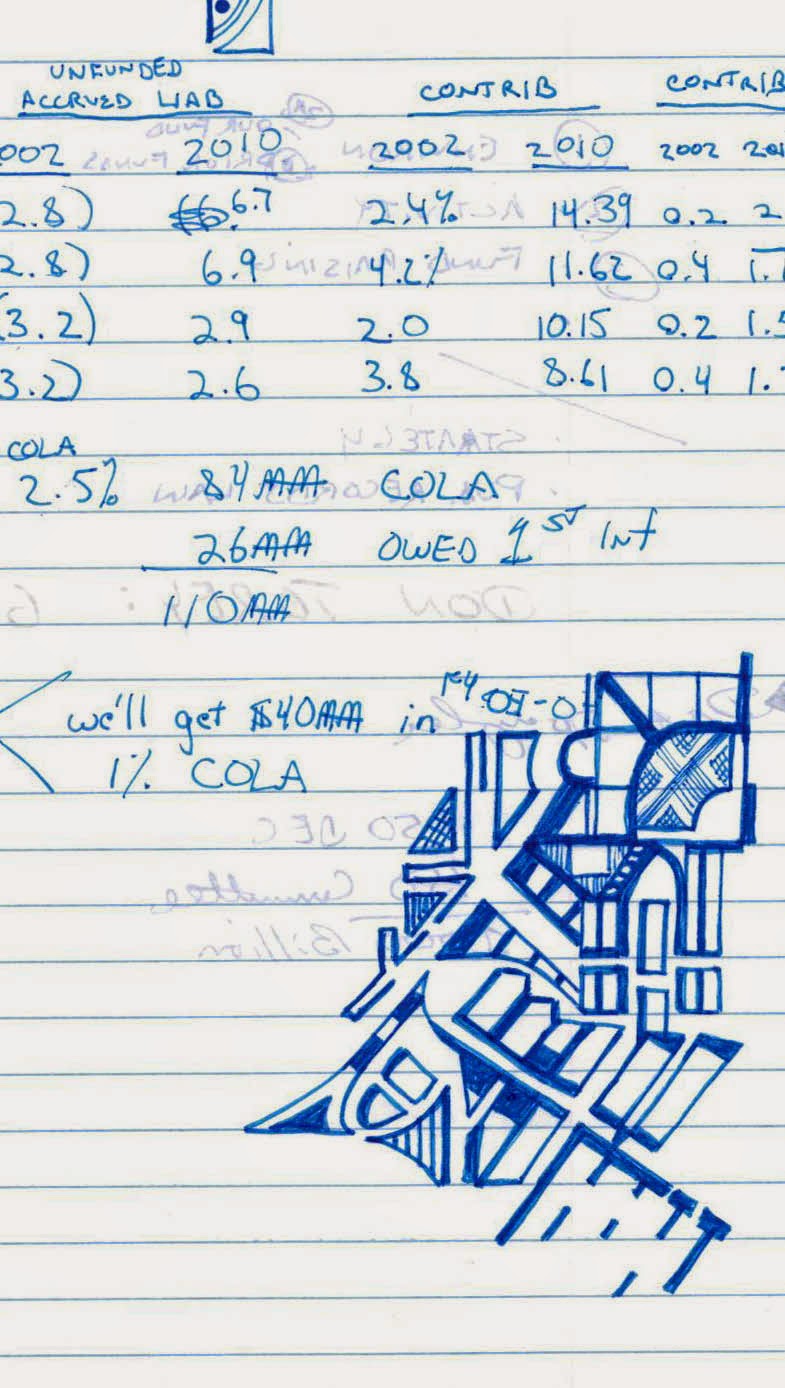 UNFUNDED
ACCRUED LIAB CONTRIB CONTRIB
002 2010 2002 2010 2002 201
2.8) 6.7 2.4% 14.39 0.2 2
2.8) 6.9 4.2% 11.62 0.4 1.7
(3.2) 2.9 2.0 10.15 0.2 1.5
3.2) 2.6 3.8 8.61 0.4 1.
COLA
2.5% 84MM COLA
26MM OWED 1ST Inf
110MM
we'll get $40MM in FY 03-0
1% COLA